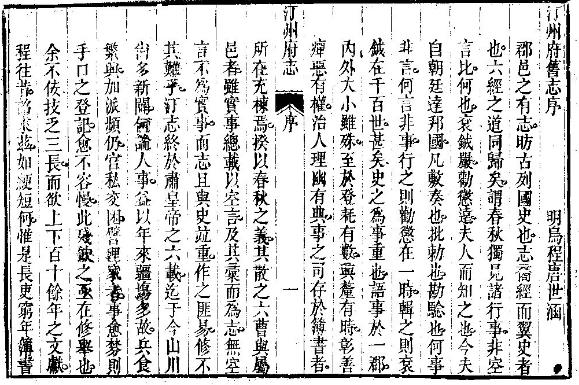 汀州府舊志序
明烏程唐世涵
郡邑之有志昉古列國史也志喬經而翼史者
也六經之道同歸矣謂春秋獨見諸行事非空
言比何也袞鉞嚴勸懲遠夫人而知之也今夫
自朝廷達邦國凡敷奏也批勅也勘驗也何事
非言何言非事行之則勸懲在一時輯之則袞
鉞在千百世甚矣史之為事重也語事於一郡
內外大小雖殊至於登耗有數興釐有時彰善
癉惡有權治人理幽有典事之可存於簿書者
汀州府志
序
一
所在充棟焉揆以春秋之義其散之六曹與屬
邑者雖實事總載以空言及其彙而為志無空
言不為實事而志且與史竝重作之匪易修不
其難乎汀志終於肅皇帝之六載迄于今山川
尚多新闢何論人事益以年來疆塲多故兵食
繁興加派頻仍官私交困譬理棼者事愈棼則
手口之登記愈不容慢此殘缺之亟在修舉也
余不佞技乏三長而欲上下百十餘年之文獻
程往昔詔來茲如綆短何惟是長吏窮年簿書